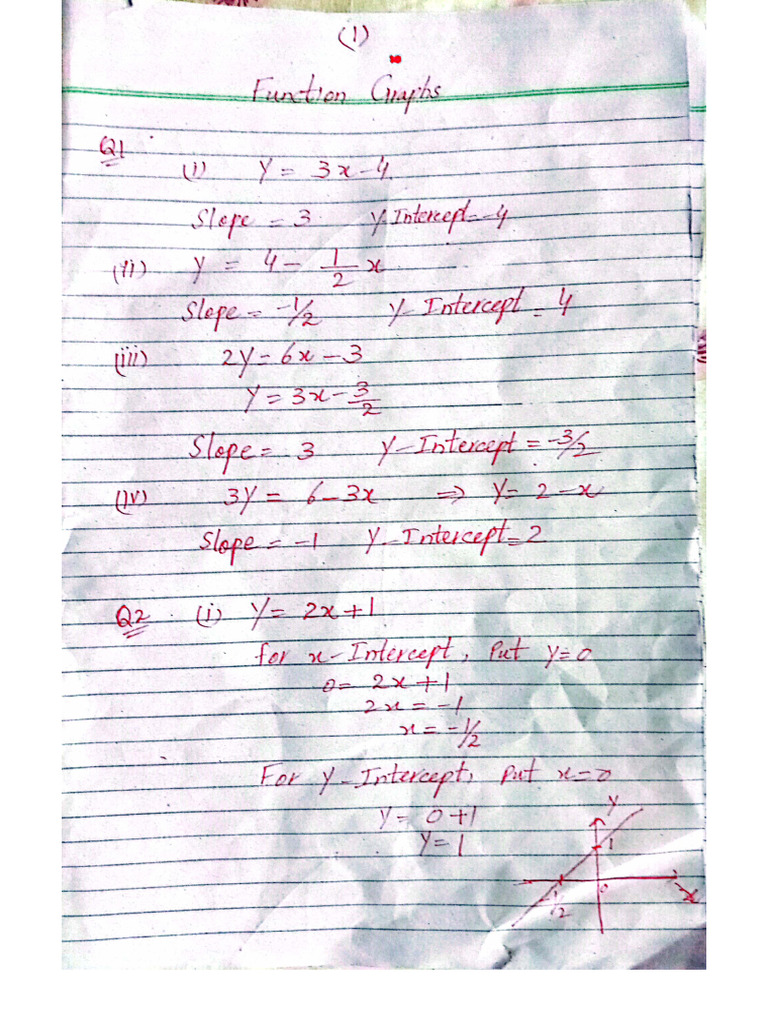 (1)
Function Graphs
Q1
(i) y = 3x-4
Slope = 3 y Intercept=-4
(ii) y = 4 - 1/2 x
Slope = -1/2 y-Intercept = 4
(iii) 2y = 6x - 3
y = 3x - 3/2
Slope = 3 y-Intercept = -3/2
(iv) 3y = 6-3x ⇒ y = 2-x
Slope = -1 y-Intercept=2
Q2 . (i) y = 2x+1
for x-Intercept, Put y=0
0 = 2x+1
2x = -1
x = -1/2
For y-Intercept, Put x=0
y = 0+1
y = 1
y
1
0
x
-1/2